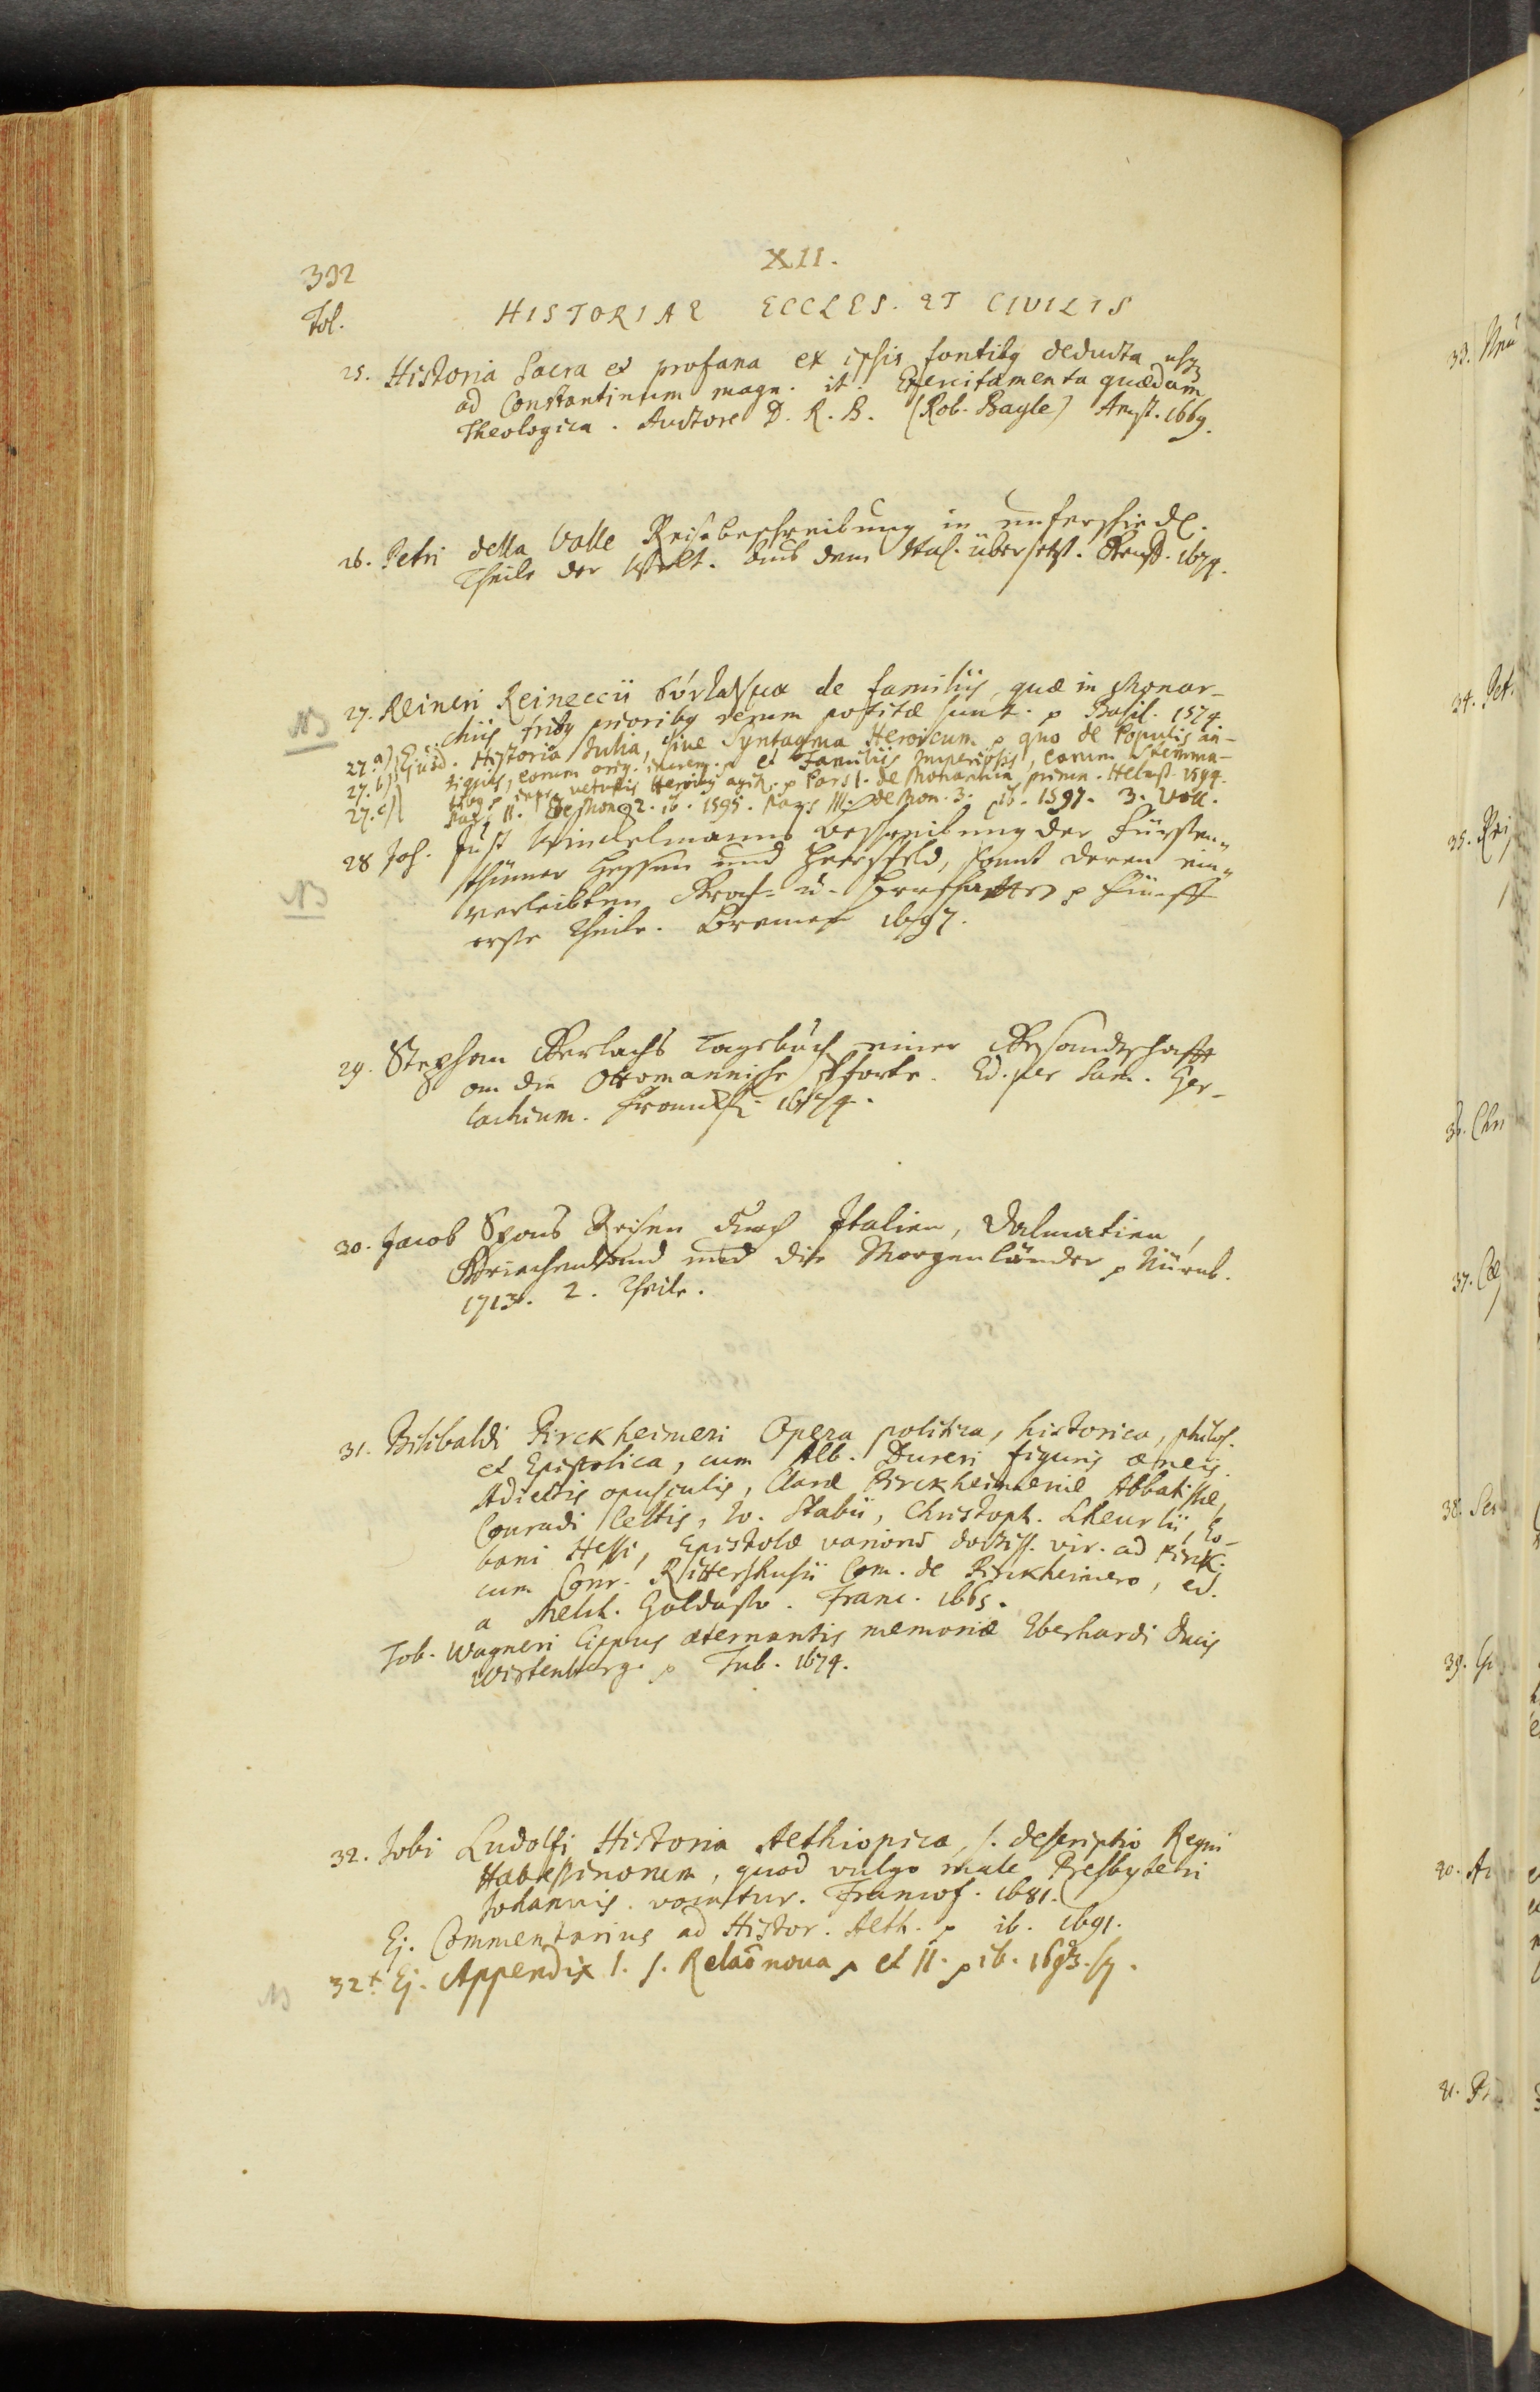 XII.
392
Fol. HISTORIAE ECCLES. ET CIVILIS
25. Historia Sacra et profana ex ipsis fontibg deducta usqz
ad Constantinum magn. it. Exercitamenta quædam
Theologica. Auctore D. R. B. (Rob. Bayle) Amst. 1669.
26. Petri della Valle Reisebeschreibung in unterschiedl.
Theile der Welt. aus dem Ital. übersetzt. Genff. 1674.
NB 27. Reineri Reineccii de familiis, quæ in Monar-
chiis tribg prioribg rerum potitæ sunt. p Basil. 1574.
27.a) Ejusd. Historia Julia, sive Syntagma Heroicum p quo de Populis an-
27.b) tiquis, eorum orig. p et Familiis Imperiosis, earum Stemma-
27.c) p vetustis p Pars I. de Monarchia prima. Helmst. 1594.
Pars II. de Mon. 2. ib. 1595. Pars III. de Mon. 3. ib. 1597. 3. Voll.
28 Joh. Just Winckelmanns Beschreibung der Fürsten-
NB thümer Hessen und Hersfeld, samt deren ein-
verleibten Graf- u. Herrschafften p fünff
erste Theile. Bremen 1697.
29. Stephan Gerlachs Tagebuch einer Gesandschafft
an die Ottomannische Pforte. Ed. per Sam. Ger-
lachium. Franckf. 1674.
30. Jacob Spons Reisen durch Italien, Dalmatien,
Griechenland und die Morgenländer p Nürnb.
1713. 2. Theile.
31. Bilibaldi Pirckheimeri Opera politica, historica, philol.
et Epistolica, cum Alb. Dureri figuris æneis.
Adiectis opusculis, Claræ Pirckheimeriæ Abbatissæ,
Conradi Celtis, Jo. Stabii, Christoph. Scheurlii, Eo-
bani Hessi, Epistolæ varions doctiss. vir. ad Pirck.
cum Conr. Rittershusii Com. de Pirckheimero, ed.
a Melch. Goldasto. Franc. 1665.
Tob. Wagneri Cippus æternantis memoriæ Eberhardi Ducis
Wirtenberg. p Tub. 1674.
32. Jobi Ludolfi Historia Aethiopica, s. descriptio Regni
Habessinorum, quod vulgo male Presbyteri
Johannis vocatur. Francof. 1681.
Ej. Commentarius ad Histor. Aeth. p ib. 1691.
NB 32+ Ej. Appendix I. s. Relaõ nova p et II. p ib. 1693. sq.
33.
34. Pet.
35. Rei
36. Chri
37.
38. Ser
39.
40. Ar
41.